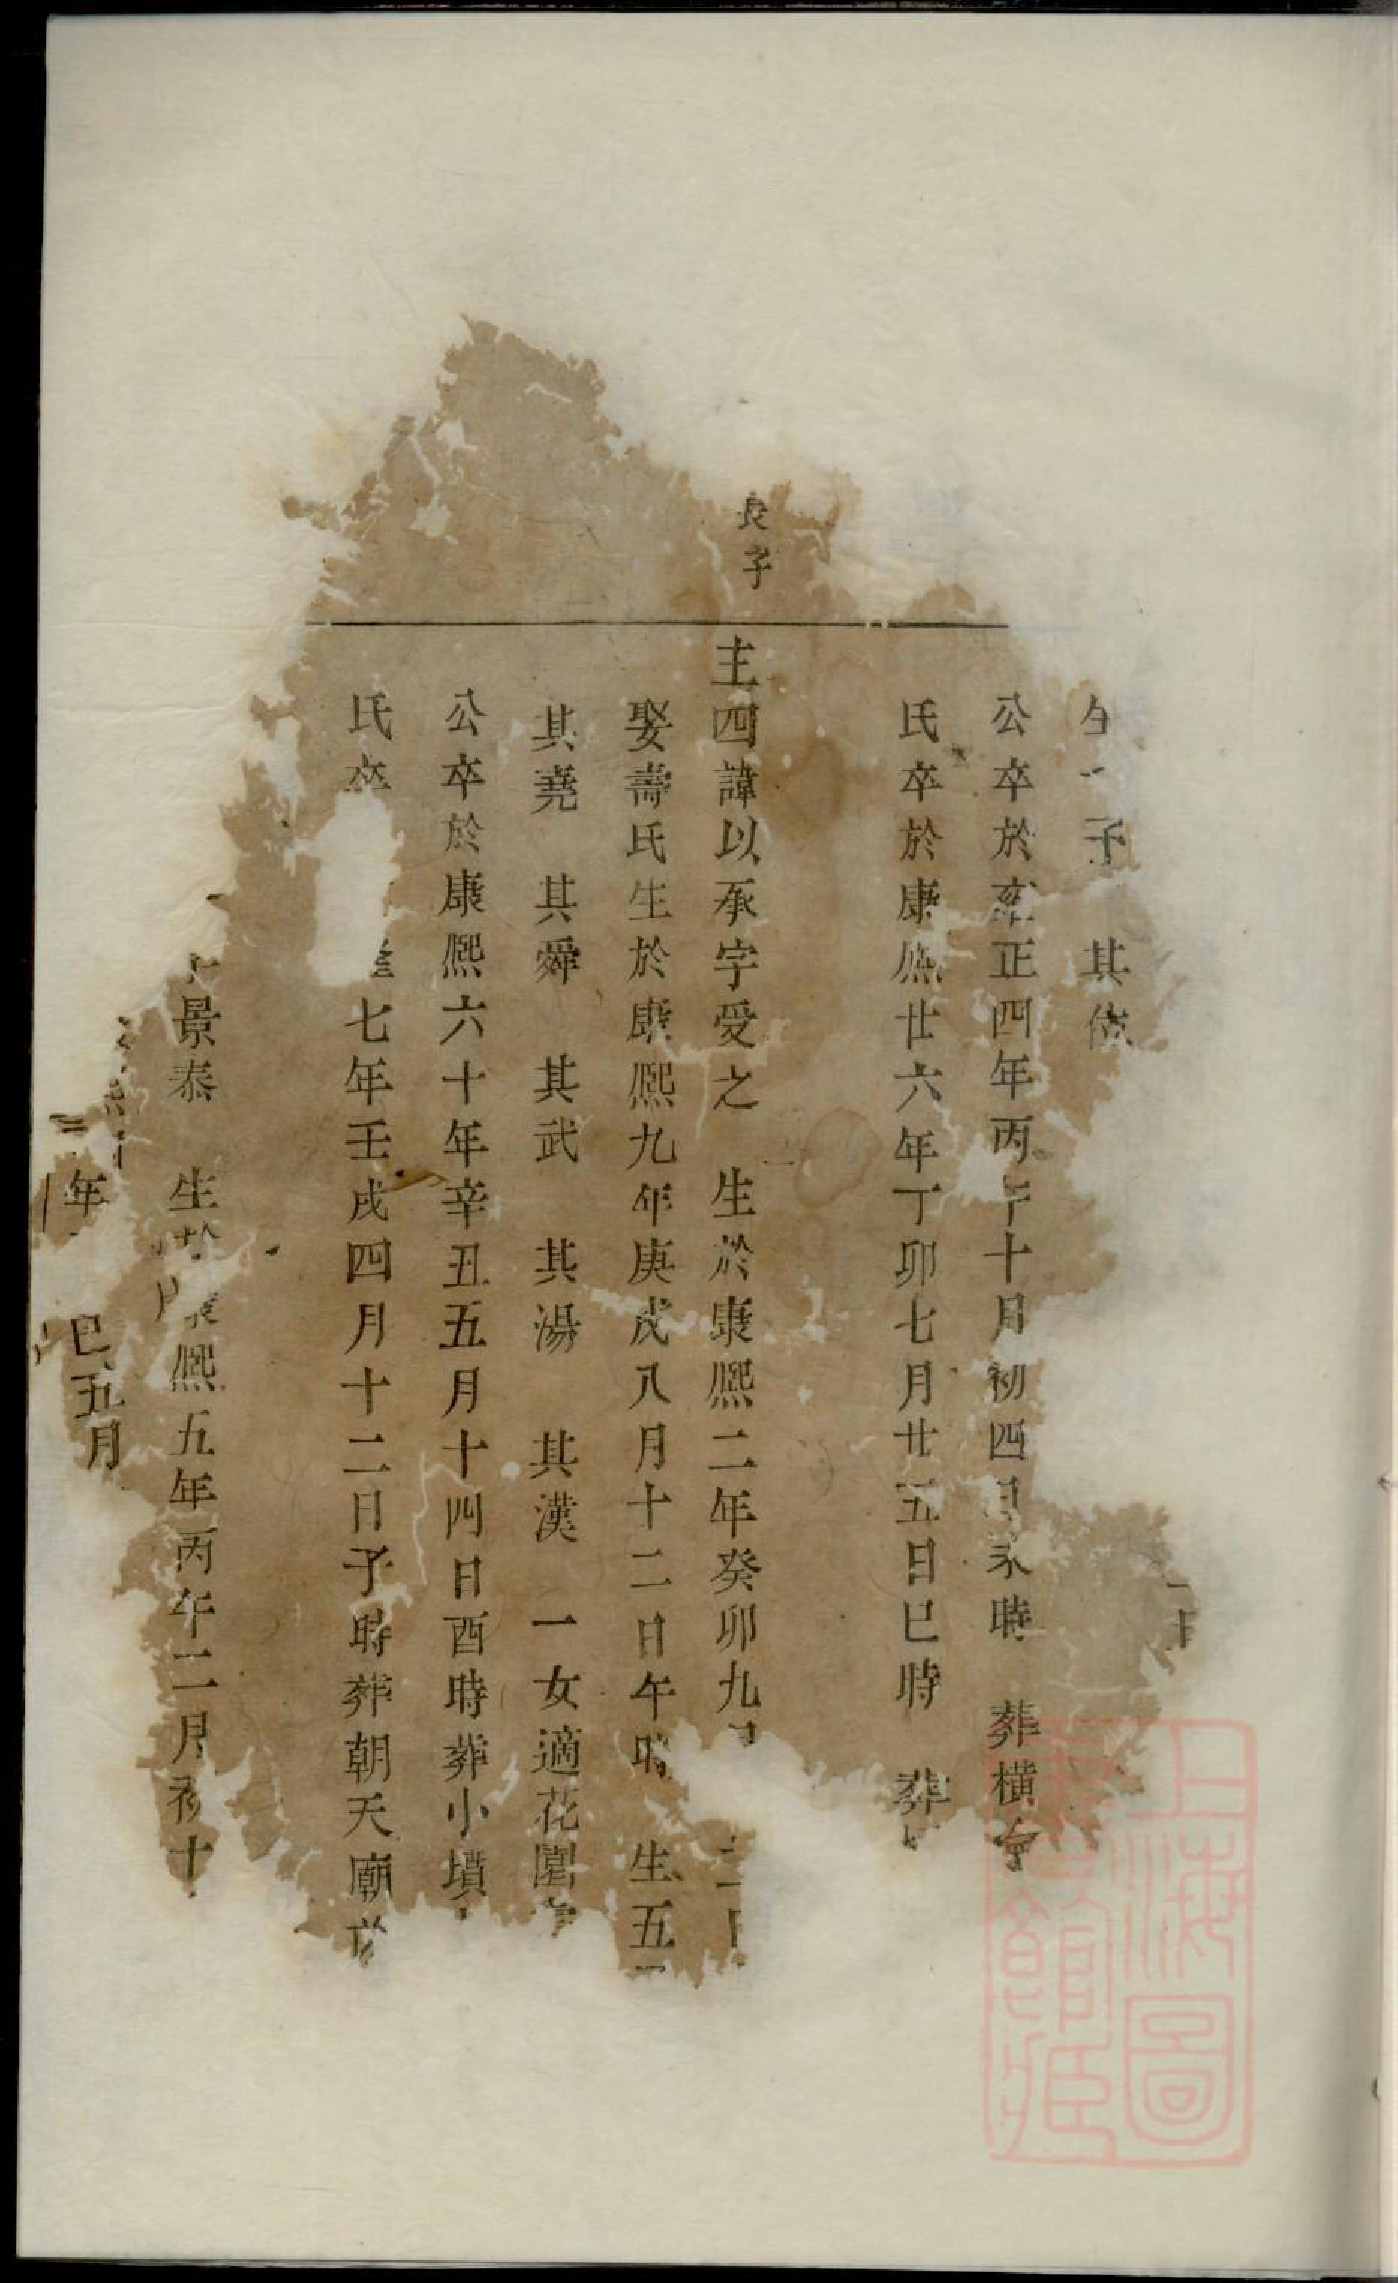 子 其
公卒於雍正四年丙午十月初四日 時 葬橫
氏卒於康熙廿六年丁卯七月廿五日巳時 葬
長子
主四諱以承字受之 生於康熙二年癸卯九月
娶壽氏生於康熙九年庚戌八月十二日午時 生五
其堯 其舜 其武 其湯 其漢 一女適花園
公卒於康熙六十年辛丑五月十四日酉時葬小墳
氏卒 隆七年壬戌四月十二日子時葬朝天廟
景泰 生於康熙五年丙午二月初十
年 巳五月
上海圖書館藏